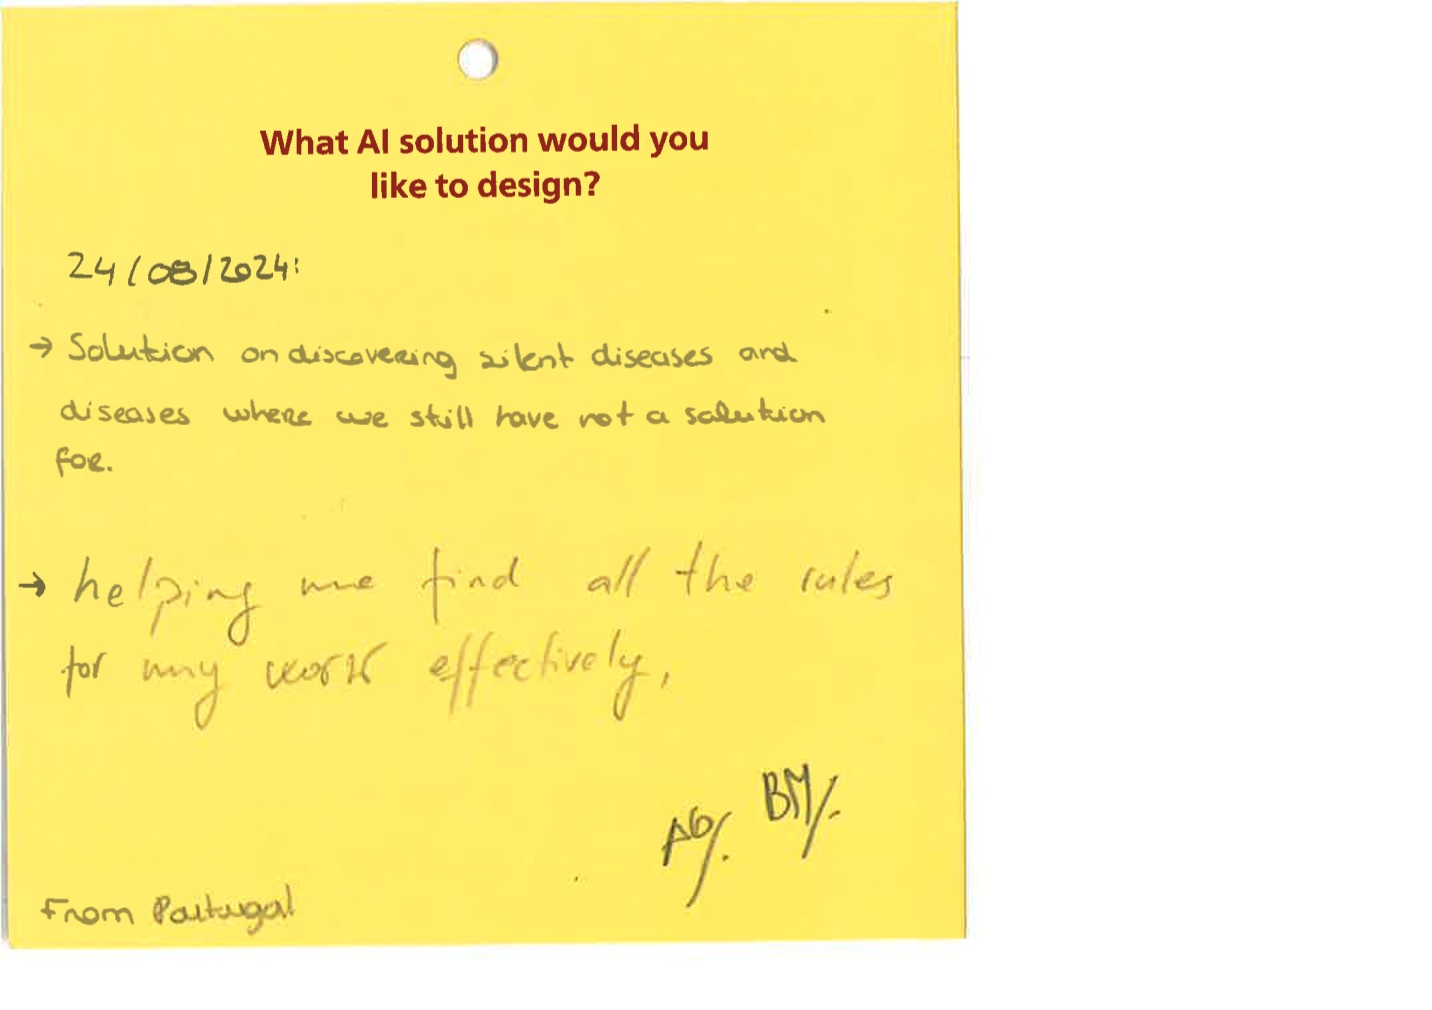 What AI solution would you
like to design?
24/08/2024:
→ Solution on discovering silent diseases and
diseases where we still have not a solution
for.
→ helping me find all the rules
for my work effectively,
BM/.
AG/.
From Portugal